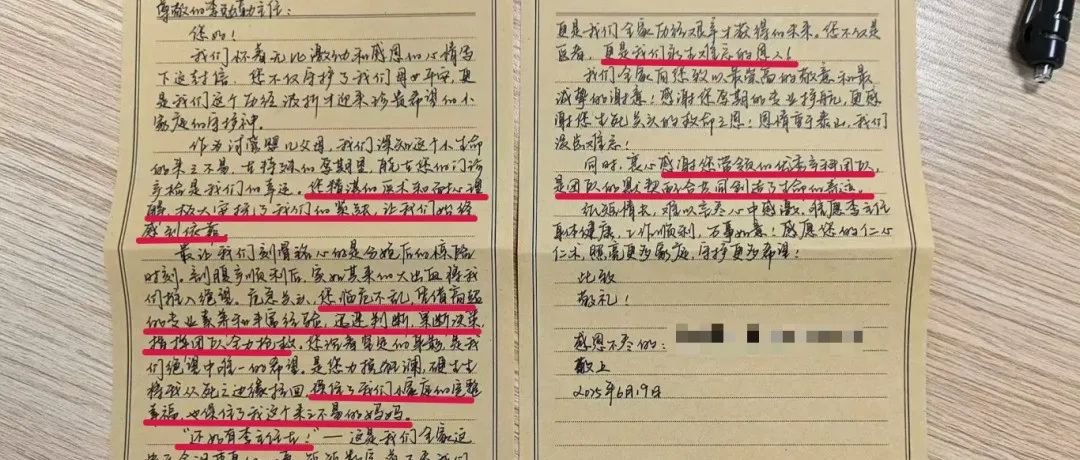 尊敬的李主任：
您好！
我们怀着无比激动和感恩的心情写
下这封信。您不仅守护了我们母女平安，更
是我们这个历经波折才迎来珍贵希望的小
家庭的守护神。
作为试管婴儿父母，我们深知这个小生命
的来之不易。在特殊的孕期里，能在您的门诊
产检是我们的幸运。您精湛的医术和耐心讲
解，极大安抚了我们的紧张，让我们始终
感到依靠。
最让我们刻骨铭心的是分娩后的惊险
时刻，剖腹产顺利后，突如其来的大出血将我
们推入绝望。危急关头，您临危不乱，凭借高超
的专业素养和丰富经验，迅速判断、果断决策，
指挥团队全力抢救。您沉着坚定的身影，是我
们绝望中唯一的希望。是您力挽狂澜，硬生生
将我从死亡边缘拉回，保住了我们小家庭的完整
幸福，也保住了我这个来之不易的妈妈。
“还好有李主任在！”——这是我们全家这
更是我们全家历经艰辛才获得的未来。您不仅是
医者，更是我们永生难忘的恩人！
我们全家向您致以最崇高的敬意和最
诚挚的谢意！感谢您孕期的专业护航，更感
谢您生死关头的救命之恩！恩情重于泰山，我们
没齿难忘！
同时，衷心感谢您带领的优秀产科团队，
是团队的默契配合共同创造了生命的奇迹。
纸短情长，难以言尽心中感激。惟愿李主任
身体健康，工作顺利，万事如意！感恩您的仁心
仁术，照亮更多家庭，守护更多希望！
此致
敬礼！
感恩不尽的：
敬上
2025年6月19日